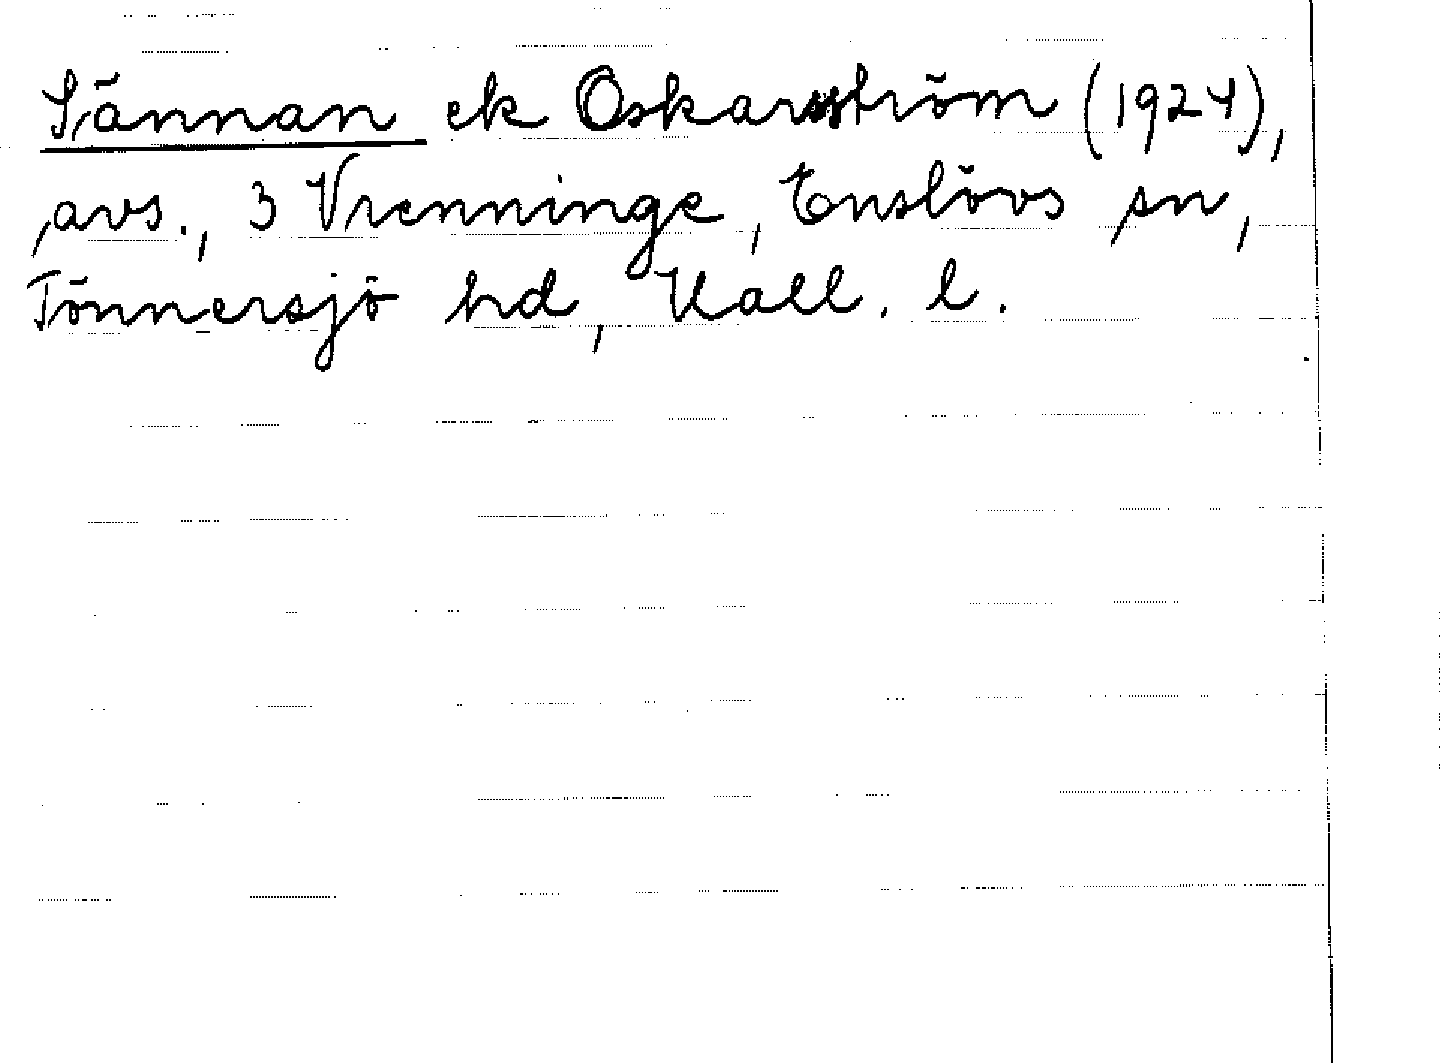 Sännan ek Oskarsström (1924),
avs., 3 Vrenninge, Enslövs sn,
Tönnersjö hd, Hall. l.